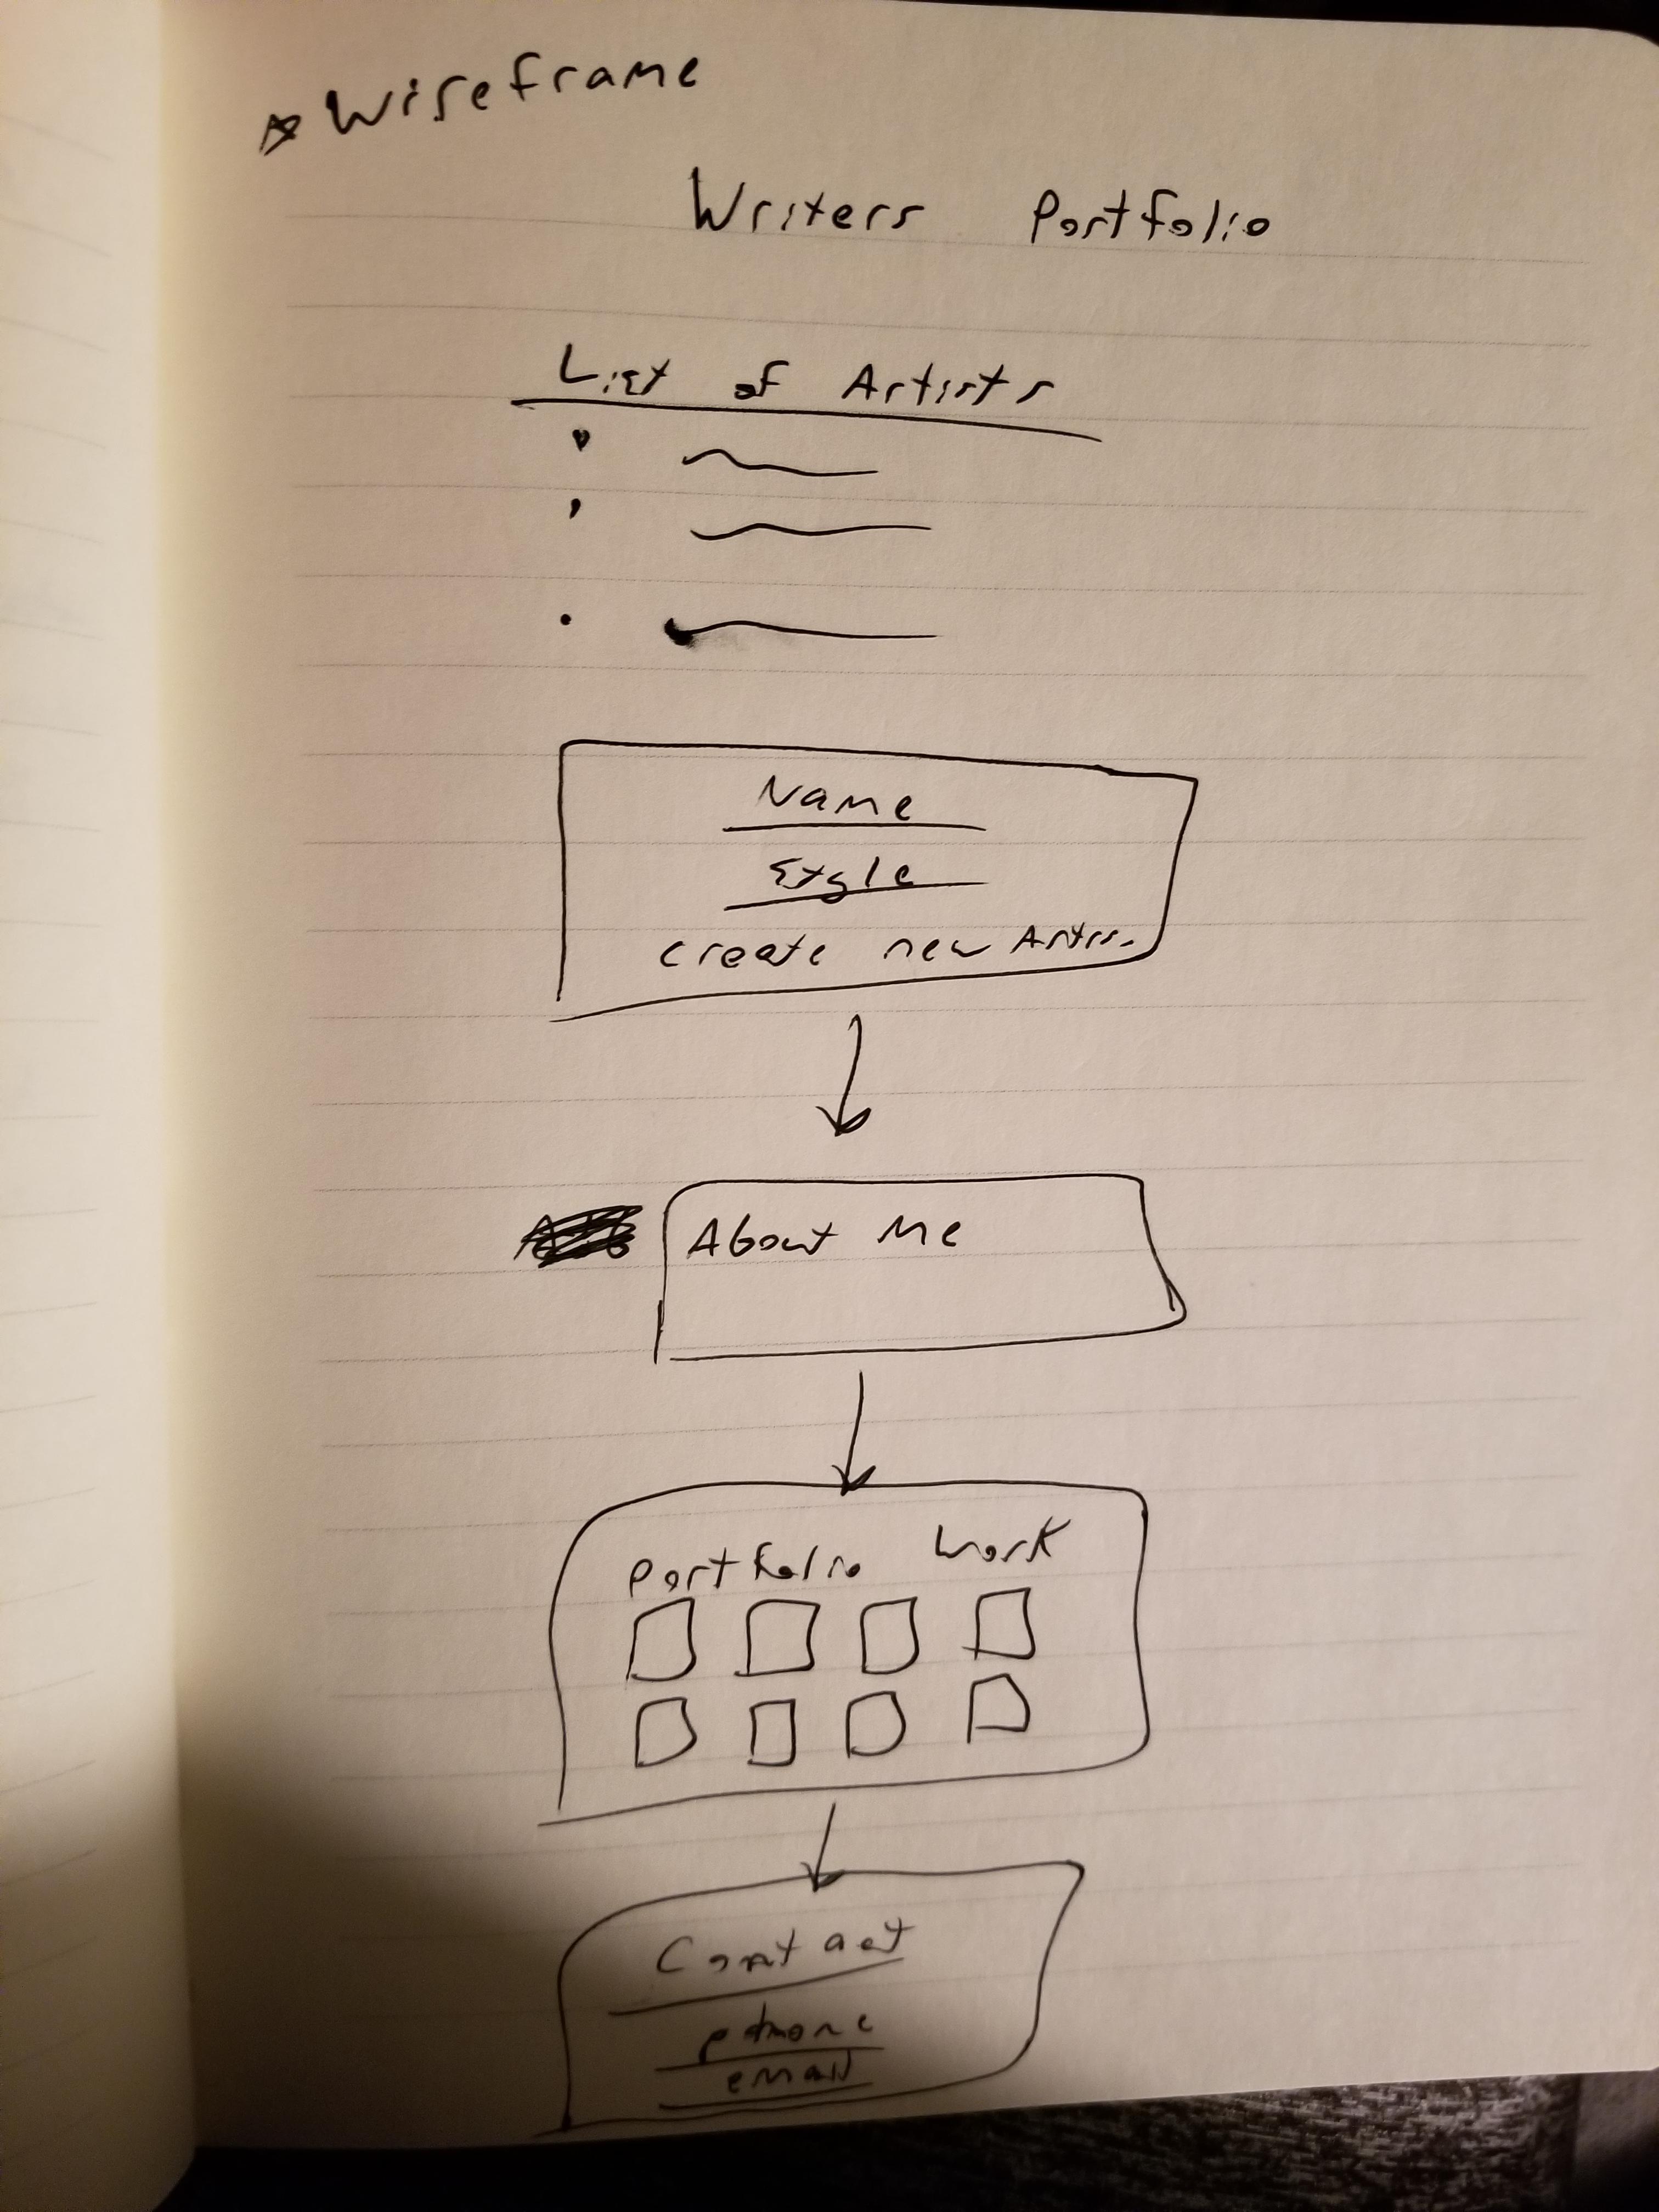 Wireframe
Writers Portfolio
List of Artists
Name
Style
create new
About Me
Portfolio Work
Contact
phone
email